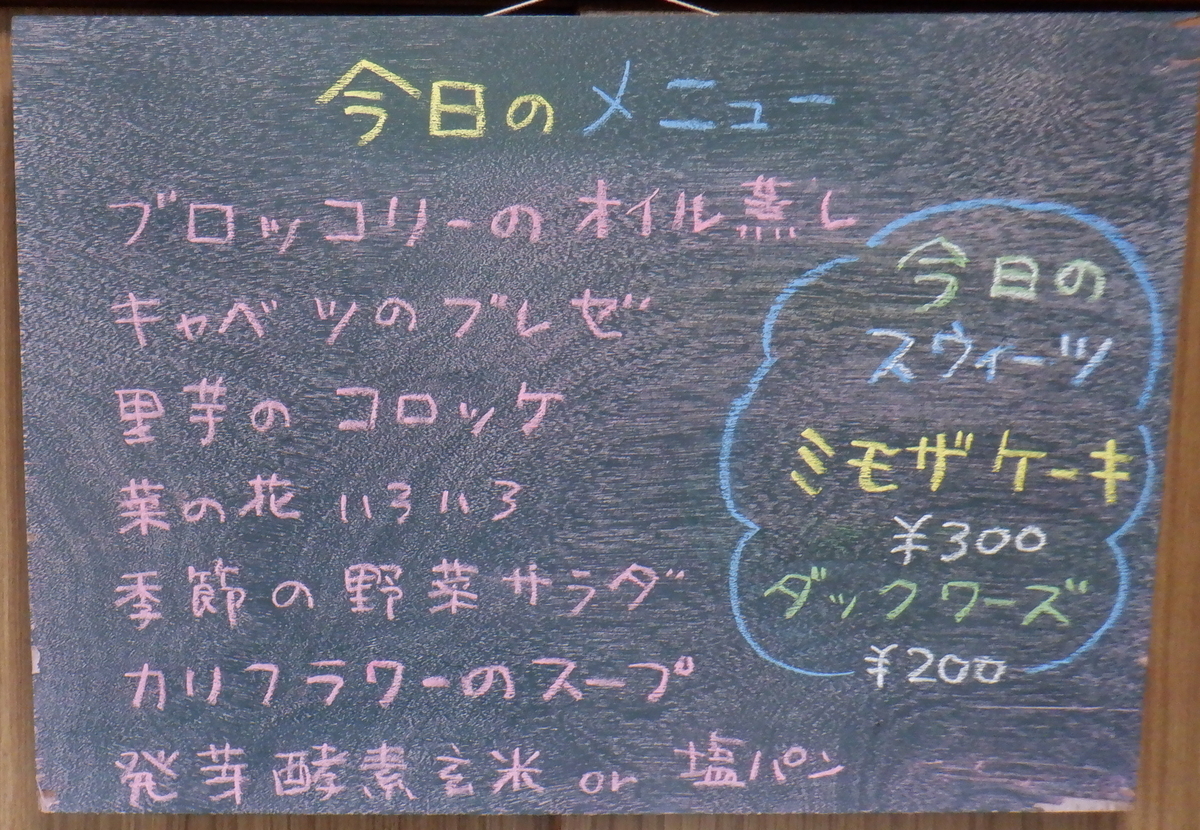 今日のメニュー
ブロッコリーのオイル蒸し
キャベツのブレゼ
里芋のコロッケ
菜の花ハろハろ
季節の野菜サラダ
カリフラワーのスープ
発芽酵素玄米 or 塩パン
今日の
スウィーツ
ミモザケーキ
¥300
ダックワーズ
¥200